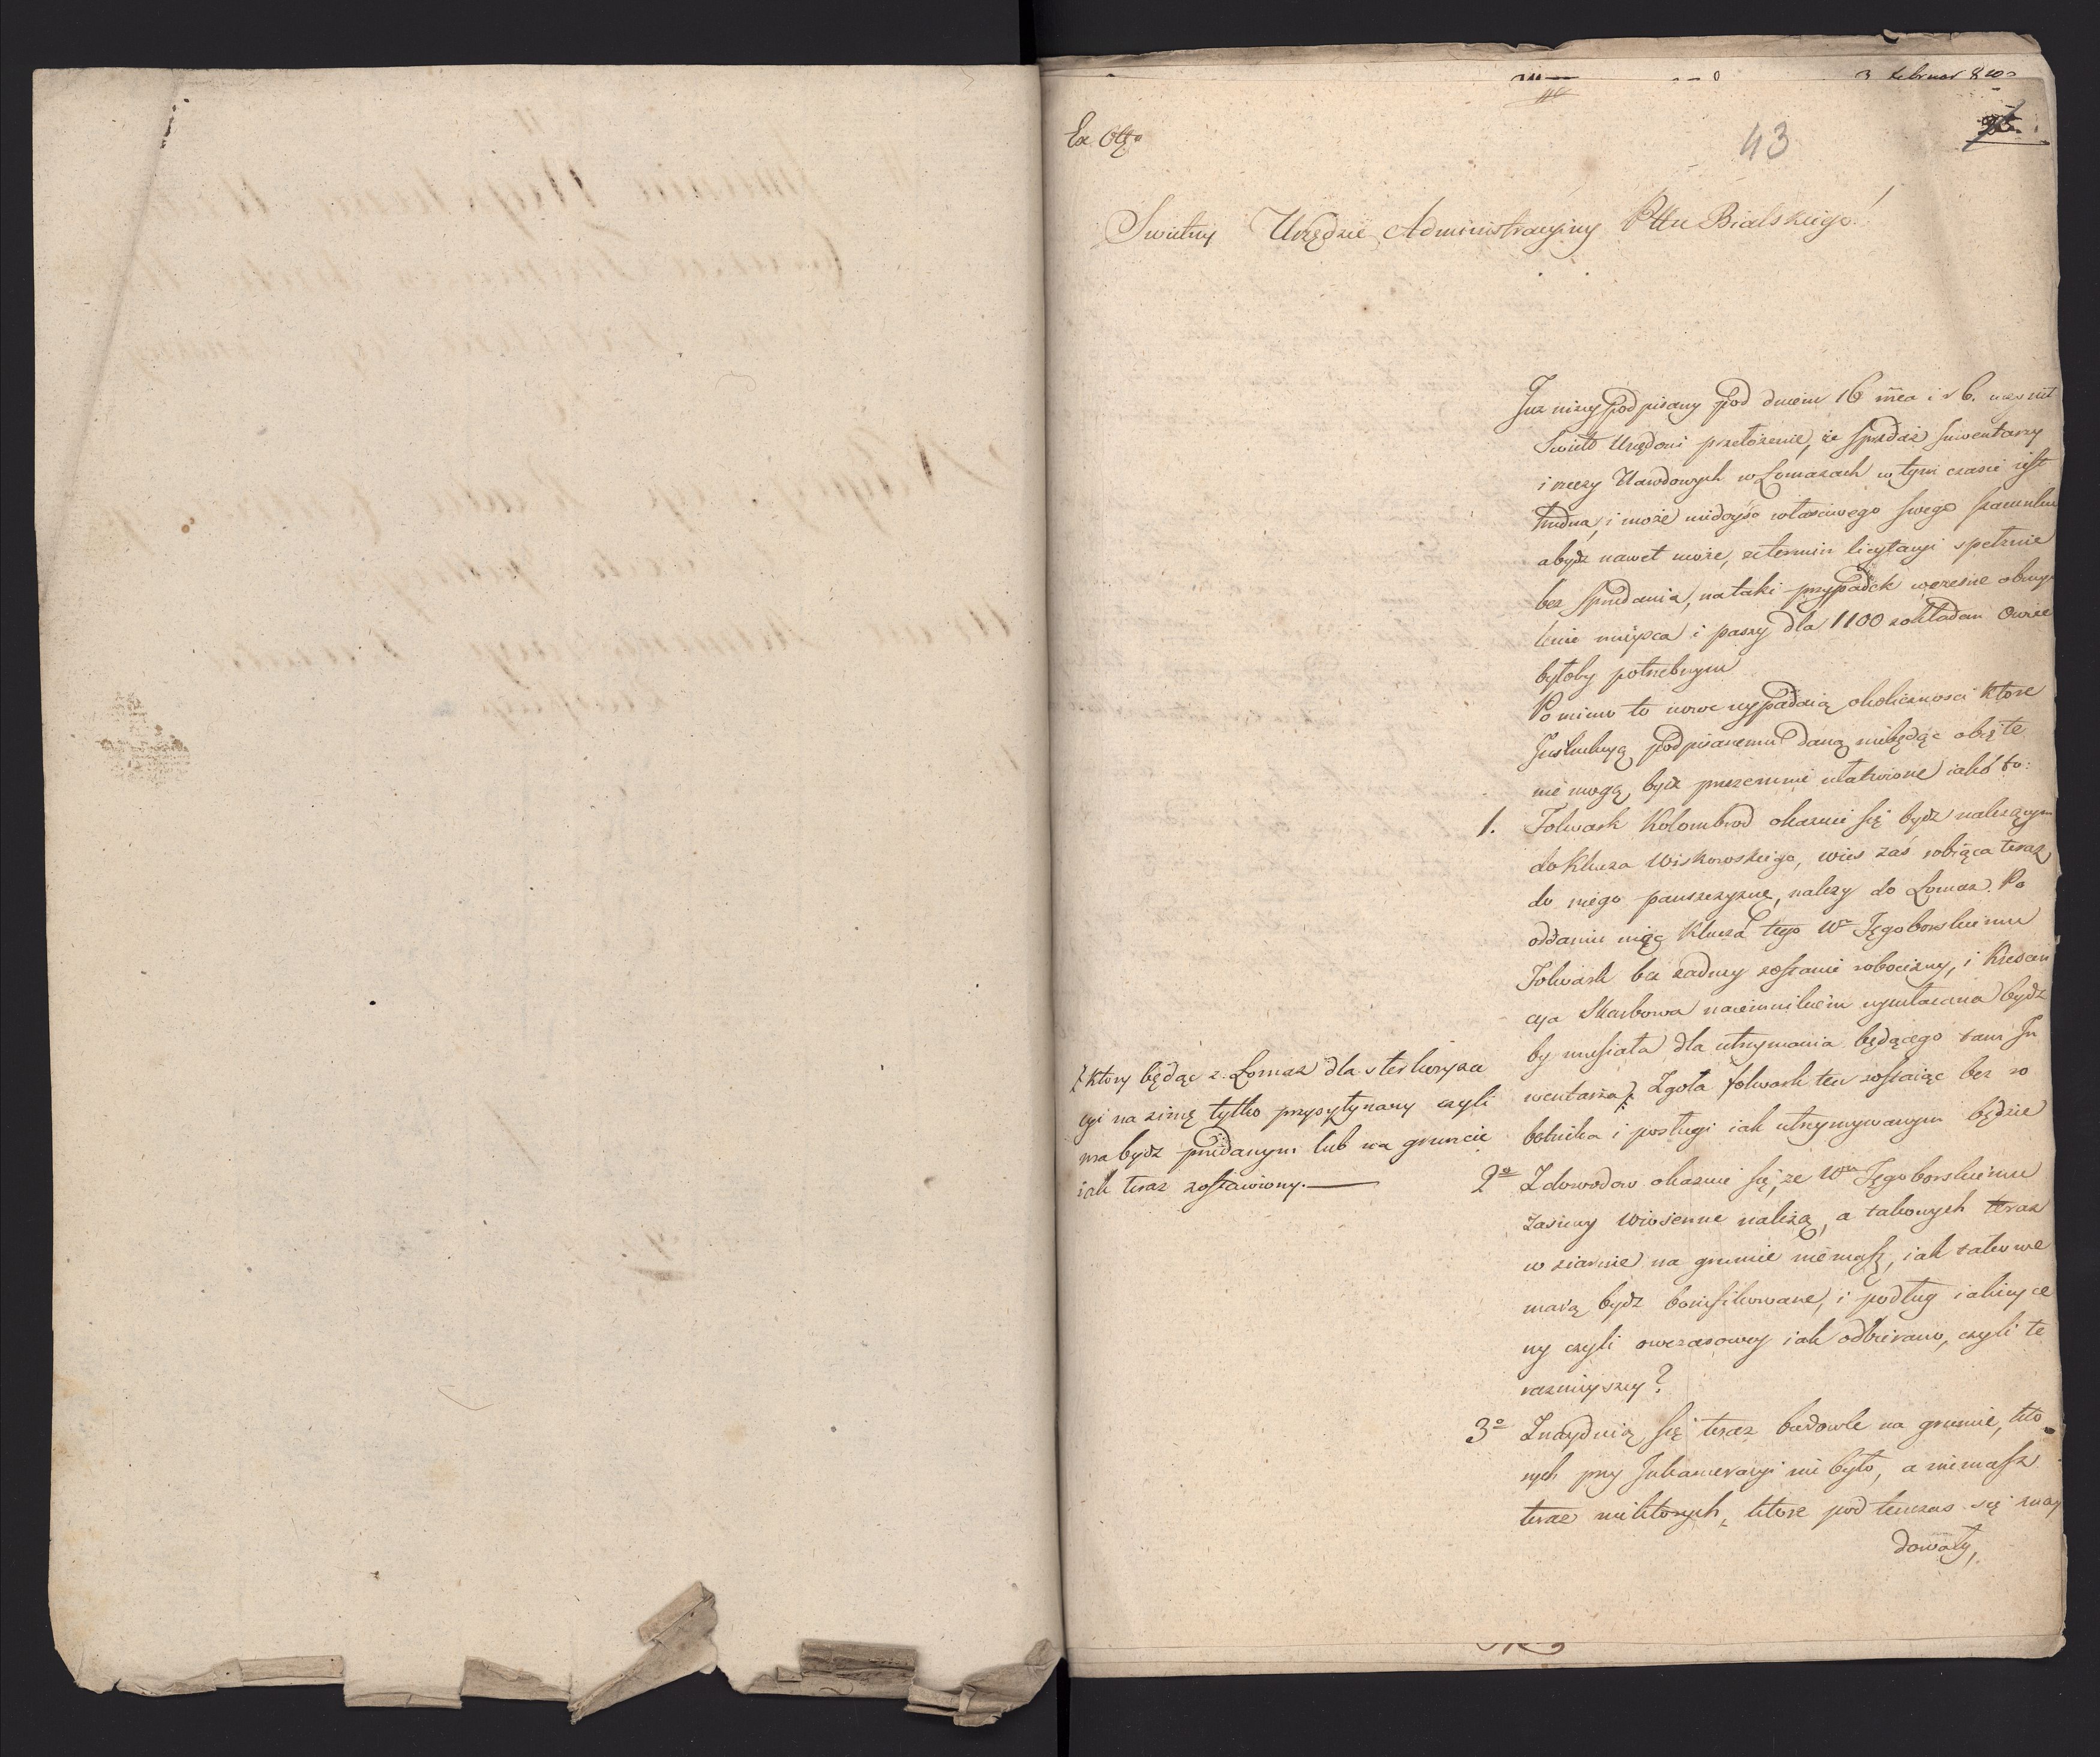 3 Februar 810
Ex Offo
43
Swietny Urzędzie Administracyiny Pttu Bialskiego!
Juz niżey podpisany pod dniem 16 mca i r b.
Swietu Urzędowi przełożenie, że sprzedaż Inwentarzy
i rzeczy Narodowych w Łomazach w tym czasie iest
trudną, i może niedoyść własciwego swego szacunku
a bydz nawet może, że termin licytacyi spełznie
bez sprzedania, na taki przypadek wczesne obmyś
lenie mieysca i paszy dla 1100 zokładem Owiec
byłoby potrzebnym
Po mimo to nowe wypadaią okolicznosci ktore
Instrukcyą podpisanemu daną niebędąc obięte
nie mogą bydz przezemnie ułatwione iako to:
1. Folwark Kolombrod okazuie się bydz należącym
do Klucza Wiskowskiego, wies zaś robiąca teraz
do niego panszczyznę, należy do Łomaz. Po
oddaniu więc Klucza tego Wu Tęgoborskiemu
Folwark bez żadney zostanie robocizny, i Krescen
cya Skarbowa naiemnikiem wymłacana bydz
by musiała dla utrzymania będącego tam In
wentarza, Zgoła folwark ten zostaiąc bez ro
botnika i posługi iak utrzymywanym będzie
ktory będąc z Łomaz dla sterkoryza
cyi na zimę tylko przypędzany czyli
ma bydz przedanym lub na gruncie
iak teraz zostawiony.
2o Z dowodow okazuie się, że Wu Tęgoborskiemu
zasiewy wiosenne należą, a takowych teraz
w ziarnie na gruncie niemasz, iak takowe
maią bydz bonifikowane, i podług iakiey ce
ny czyli owczasowey iak odbierano, czyli te
raznieyszey?
3o Znayduią się teraz budowle na gruncie, kto
rych przy Inkameracyi nie było, a niemasz
teraz niektorych, ktore pod tenczas się znay
dowały,